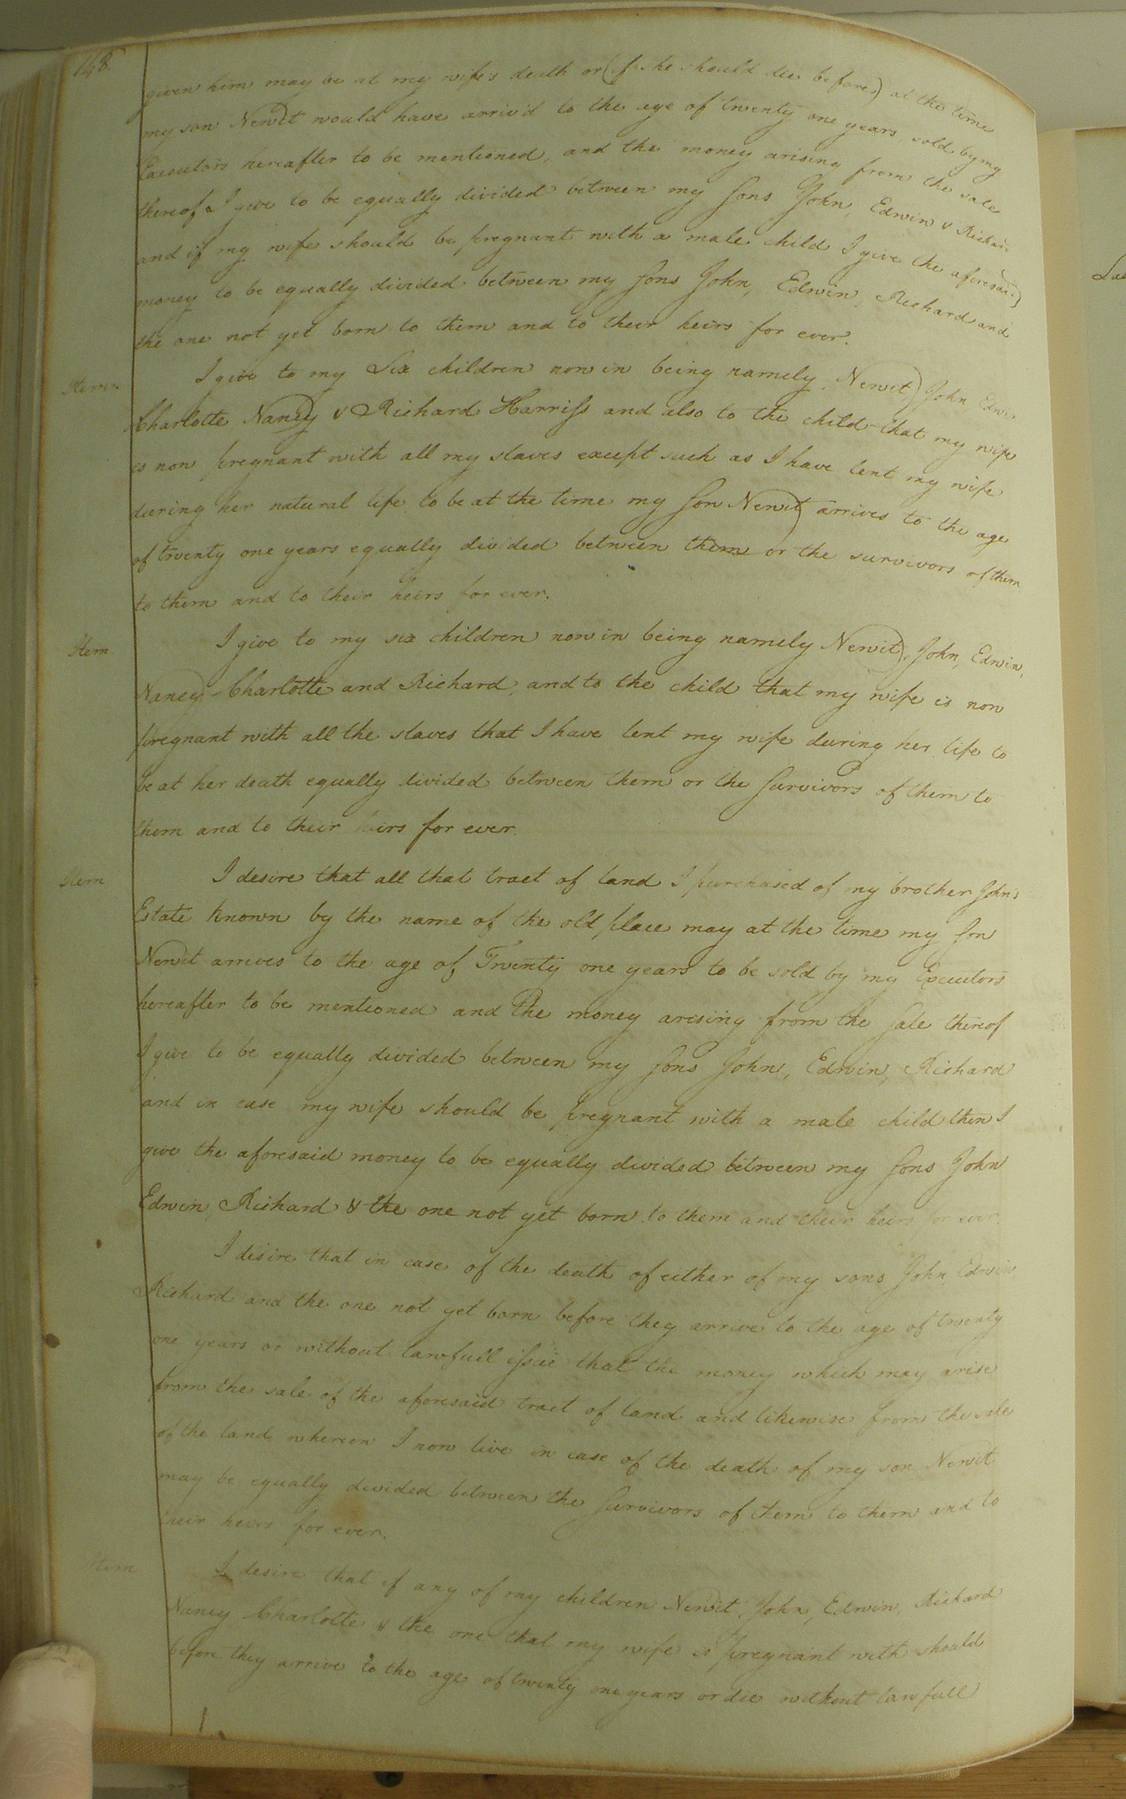 148
given him may be at my wife's death or (if she should die before) at the time
my son Newit would have arriv'd to the age of twenty one years sold by my
Executors hereafter to be mentioned, and the money arising from the sale
thereof I give to be equally divided between my sons John, Edwin & Richard
and if my wife should be pregnant with a male child I give the aforesaid
money to be equally divided between my sons John, Edwin, Richard and
the one not yet born to them and to their heirs for ever.
Item I give to my Six children now in being namely Newit, John Edwin
Charlotte Nancy & Richard Harriss and also to the child that my wife
is now pregnant with all my slaves except such as I have lent my wife
during her natural life to be at the time my son Newit arrives to the age
of twenty one years equally divided between them or the survivors of them
to them and to their heirs for ever.
Item I give to my six children now in being namely Newit, John, Edwin,
Nancy, Charlotte and Richard, and to the child that my wife is now
pregnant with all the slaves that I have lent my wife during her life to
be at her death equally divided between them or the survivors of them to
them and to their heirs for ever.
Item I desire that all that tract of land I purchased of my brother John's
Estate known by the name of the old place may at the time my son
Newit arrives to the age of Twenty one years to be sold by my Executors
hereafter to be mentioned and the money arising from the sale thereof
I give to be equally divided between my sons John, Edwin, Richard
and in case my wife should be pregnant with a male child then I
give the aforesaid money to be equally divided between my sons John
Edwin, Richard & the one not yet born to them and their heirs for ever.
I desire that in case of the death of either of my sons John, Edwin
Richard and the one not yet born before they arrive to the age of twenty
one years or without lawfull issue that the money which may arise
from the sale of the aforesaid tract of land and likewise from the sale
of the land whereon I now live in case of the death of my son Newit
may be equally divided between the survivors of them to them and to
their heirs for ever.
Item I desire that if any of my children Newit, John, Edwin, Richard
Nancy Charlotte & the one that my wife is pregnant with should
before they arrive to the age of twenty one years or die without lawfull